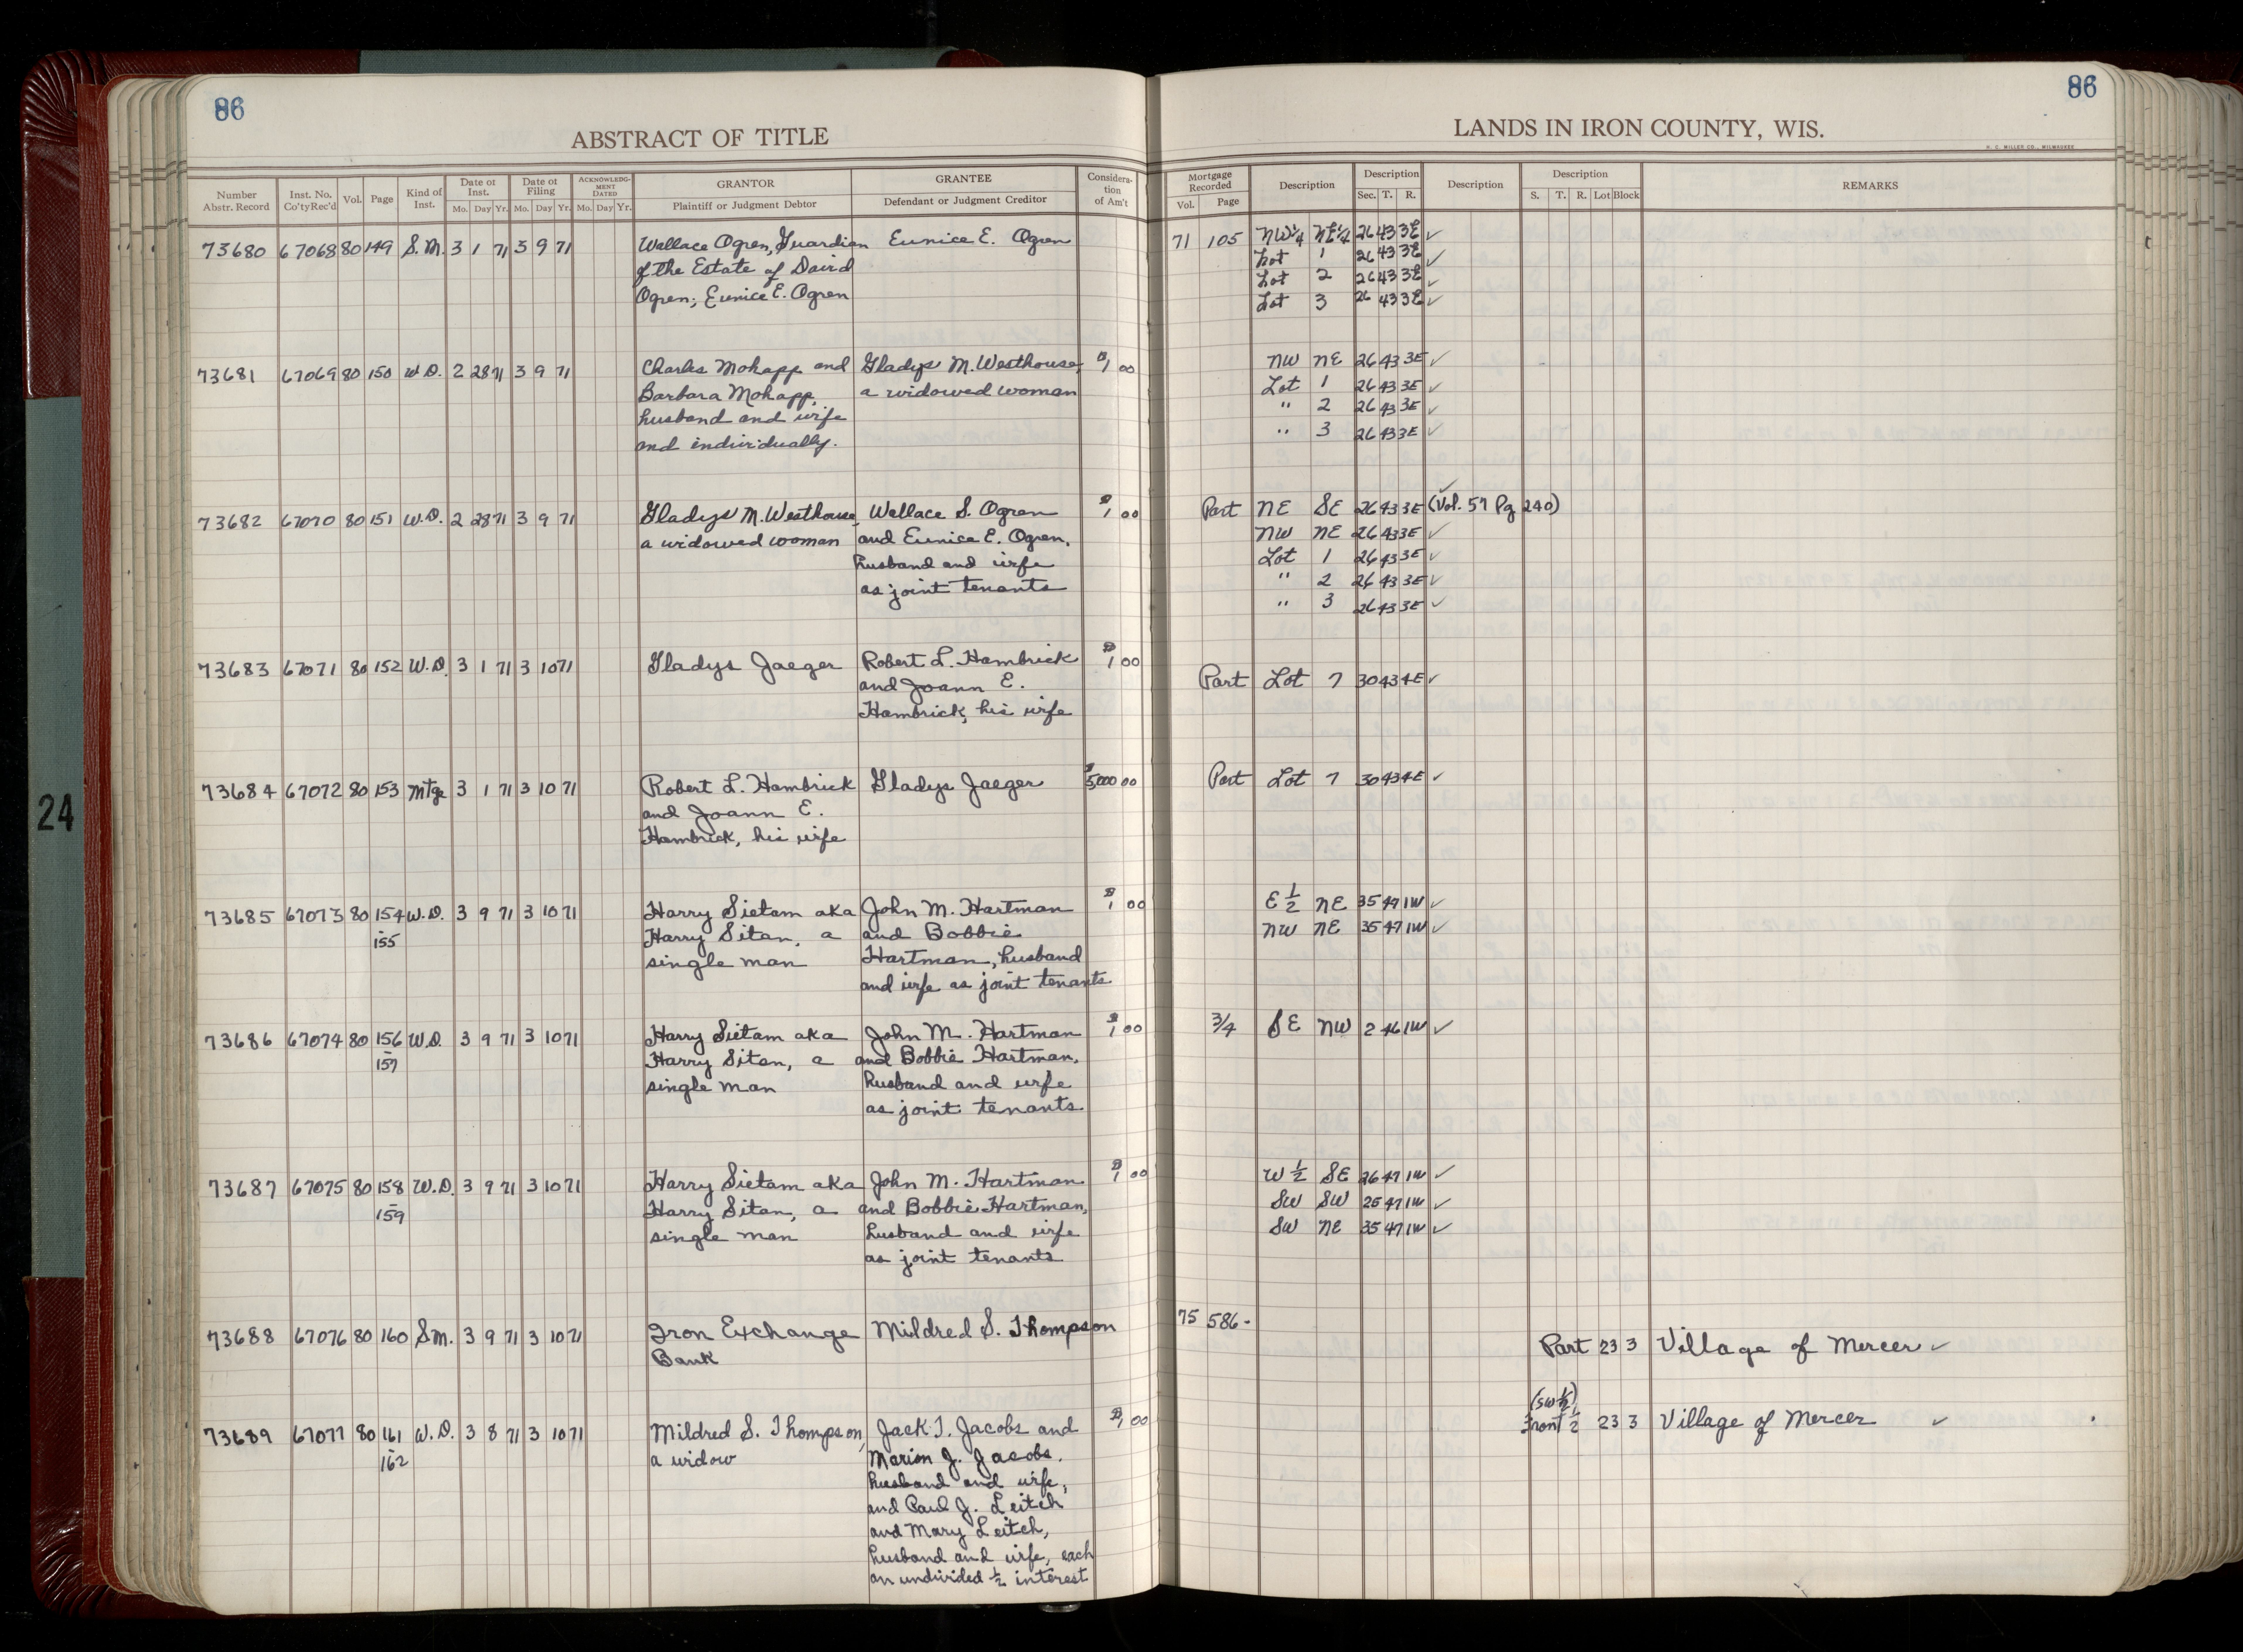 86
86
ABSTRACT OF TITLE
LANDS IN IRON COUNTY, WIS.
H. C. MILLER CO., MILWAUKEE
Number Abstr. Record Inst. No. Co'ty Rec'd Vol. Page Kind of Inst. Date of Inst. Mo. Day Yr. Date of Filing Mo. Day Yr. ACKNOWLEDGMENT DATED Mo. Day Yr. GRANTOR Plaintiff or Judgment Debtor GRANTEE Defendant or Judgment Creditor Consideration of Am't
Mortgage Recorded Vol. Page Description Description Sec. T. R. Description Description S. T. R. Lot Block REMARKS
73680 67068 80 149 S.M. 3 1 71 3 9 71 Wallace Ogren, Guardian Eunice E. Ogren 71 105 NW¼ NE¼ 26 43 3E ✓
of the Estate of David Lot 1 26 43 3E ✓
Ogren; Eunice E. Ogren Lot 2 26 43 3E ✓
Lot 3 26 43 3E ✓
73681 67069 80 150 W.D. 2 28 71 3 9 71 Charles Mohapp and Gladys M. Westhouse, $1 00 NW NE 26 43 3E ✓
Barbara Mohapp, a widowed woman Lot 1 26 43 3E ✓
husband and wife " 2 26 43 3E ✓
and individually. " 3 26 43 3E ✓
73682 67070 80 151 W.D. 2 28 71 3 9 71 Gladys M. Westhouse, Wallace S. Ogren $1 00 Part NE SE 26 43 3E (Vol. 57 Pg 240) ✓
a widowed woman and Eunice E. Ogren, NW NE 26 43 3E ✓
husband and wife Lot 1 26 43 3E ✓
as joint tenants " 2 26 43 3E ✓
" 3 26 43 3E ✓
73683 67071 80 152 W.D. 3 1 71 3 10 71 Gladys Jaeger Robert L. Hambrick $1 00 Part Lot 7 30 43 4E ✓
and Joann E.
Hambrick, his wife
73684 67072 80 153 Mtge 3 1 71 3 10 71 Robert L. Hambrick Gladys Jaeger $5000 00 Part Lot 7 30 43 4E ✓
and Joann E.
Hambrick, his wife
73685 67073 80 154 W.D. 3 9 71 3 10 71 Harry Sietam aka John M. Hartman $1 00 E ½ NE 35 47 1W ✓
- 155 Harry Sitan, a and Bobbie NW NE 35 47 1W ✓
single man Hartman, husband
and wife as joint tenants
73686 67074 80 156 W.D. 3 9 71 3 10 71 Harry Sietam aka John M. Hartman $1 00 3/4 SE NW 2 46 1W ✓
- 157 Harry Sitan, a and Bobbie Hartman,
single man husband and wife
as joint tenants
73687 67075 80 158 W.D. 3 9 71 3 10 71 Harry Sietam aka John M. Hartman $1 00 W ½ SE 26 47 1W ✓
- 159 Harry Sitan, a and Bobbie Hartman, SW SW 25 47 1W ✓
single man husband and wife SW NE 35 47 1W ✓
as joint tenants
73688 67076 80 160 S.M. 3 9 71 3 10 71 Iron Exchange Mildred S. Thompson 75 586- Part 23 3 Village of Mercer ✓
Bank
73689 67077 80 161 W.D. 3 8 71 3 10 71 Mildred S. Thompson, Jack T. Jacobs and $1 00 (SW½) Front ½ 23 3 Village of Mercer ✓
- 162 a widow Marion J. Jacobs,
husband and wife,
and Paul J. Leitch
and Mary Leitch,
husband and wife, each
an undivided ½ interest
24